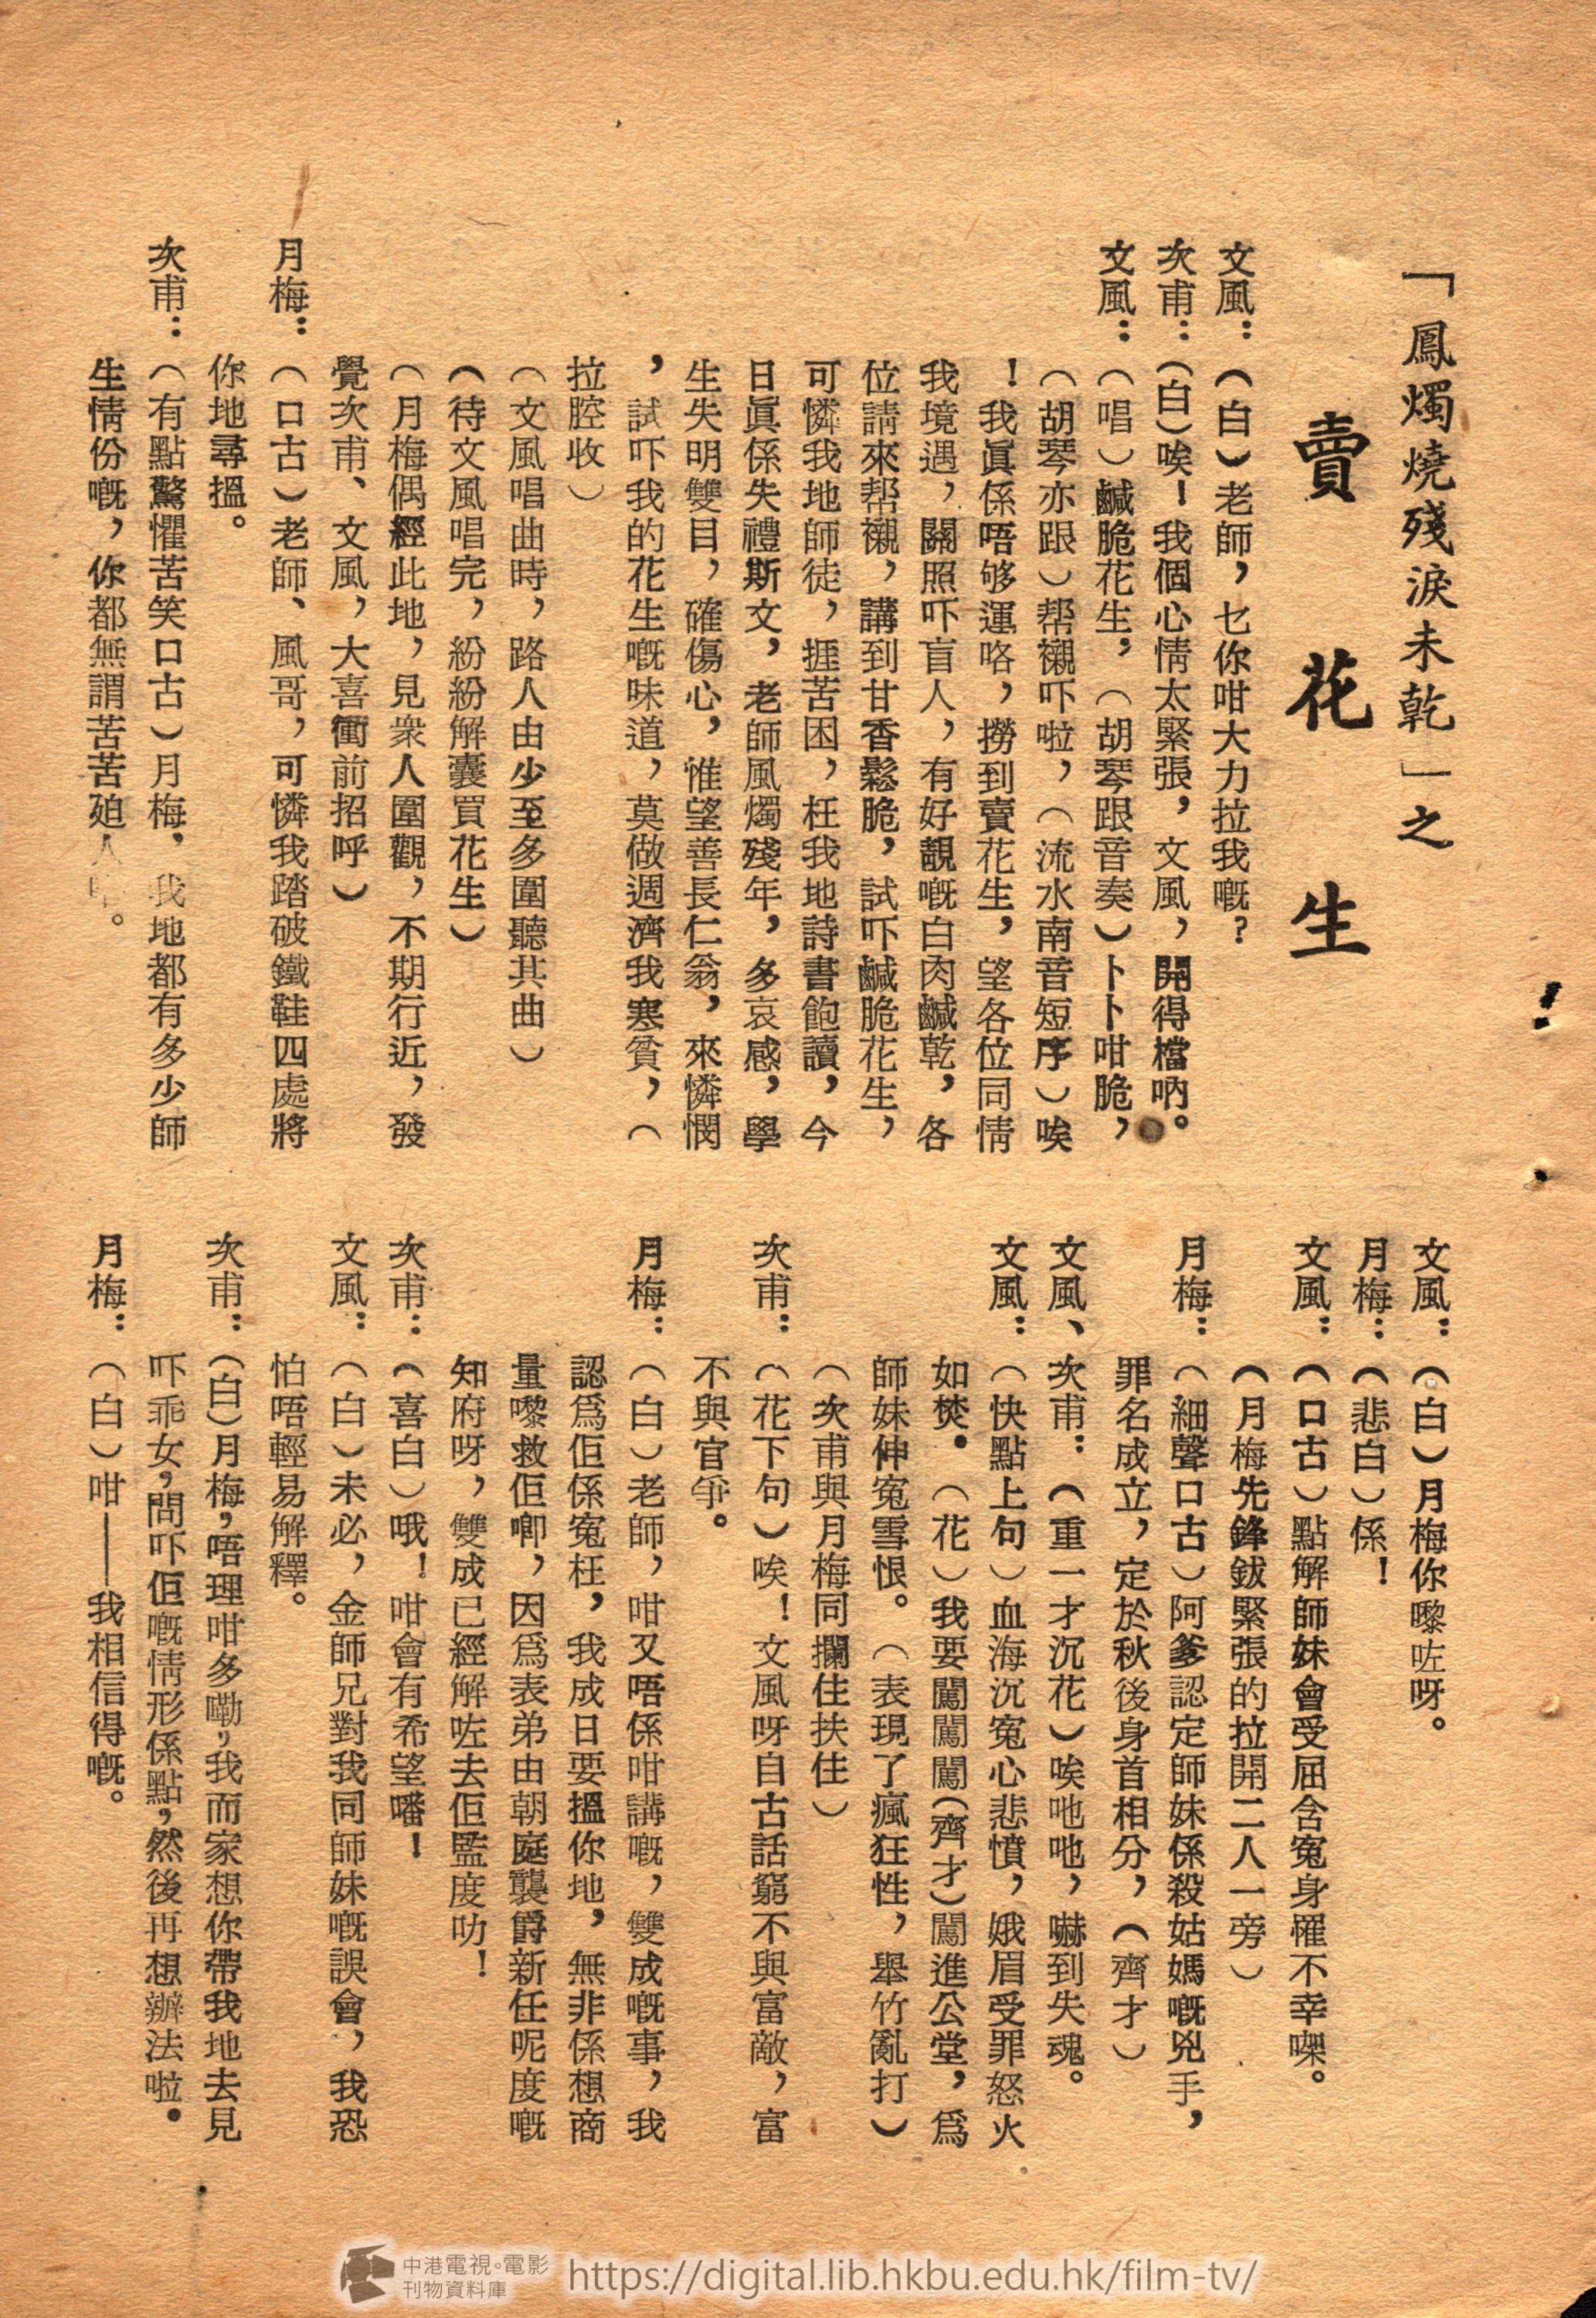 「鳳燭燒殘淚未乾」之
賣花生
文風：（白）老師，乜你咁大力拉我嘅？
次甫：（白）唉！我個心情太緊張，文風，開得檔吶。
文風：（唱）鹹脆花生，（胡琴跟音奏）卜卜咁脆，
（胡琴亦跟）帮襯吓啦，（流水南音短序）唉
！我眞係唔够運咯，撈到賣花生，望各位同情
我境遇，關照吓盲人，有好靚嘅白肉鹹乾，各
位請來帮襯，講到甘香鬆脆，試吓鹹脆花生，
可憐我地師徒，捱苦困，枉我地詩書飽讀，今
日眞係失禮斯文，老師風燭殘年，多哀感，學
生失明雙目，確傷心，惟望善長仁翁，來憐憫
，試吓我的花生嘅味道，莫做週濟我寒貧，（
拉腔收）
（文風唱曲時，路人由少至多圍聽其曲）
（待文風唱完，紛紛解囊買花生）
（月梅偶經此地，見衆人圍觀，不期行近，發
覺次甫、文風，大喜衝前招呼）
月梅：（口古）老師、風哥，可憐我踏破鐵鞋四處將
你地尋搵。
次甫：（有點驚懼苦笑口古）月梅，我地都有多少師
生情份嘅，你都無謂苦苦廹人。
文風：（白）月梅你嚟咗呀。
月梅：（悲白）係！
文風：（口古）點解師妹會受屈含寃身罹不幸㗎。
（月梅先鋒鈸緊張的拉開二人一旁）
月梅：（細聲口古）阿爹認定師妹係殺姑媽嘅兇手，
罪名成立，定於秋後身首相分，（齊才）
文風、次甫：（重一才沉花）唉吔吔，嚇到失魂。
文風：（快點上句）血海沉寃心悲憤，娥眉受罪怒火
如焚。（花）我要闖闖闖（齊才）闖進公堂，爲
師妹伸寃雪恨。（表現了瘋狂性，舉竹亂打）
（次甫與月梅同攔住扶住）
次甫：（花下句）唉！文風呀自古話窮不與富敵，富
不與官爭。
月梅：（白）老師，咁又唔係咁講嘅，雙成嘅事，我
認爲佢係寃枉，我成日要搵你地，無非係想商
量嚟救佢啫，因爲表弟由朝庭襲爵新任呢度嘅
知府呀，雙成已經解咗去佢監度叻！
次甫：（喜白）哦！咁會有希望噃！
文風：（白）未必，金師兄對我同師妹嘅誤會，我恐
怕唔輕易解釋。
次甫：（白）月梅，唔理咁多嘞，我而家想你帶我地去見
吓乖女，問吓佢嘅情形係點，然後再想辦法啦。
月梅：（白）咁——我相信得嘅。
中港電視。電影
刊物資料庫
https://digital.lib.hkbu.edu.hk/film-tv/